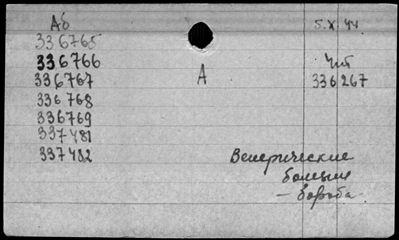 Аб
336765
336766
336767
336768
336769
337481
337482
А
5.X.44
Чит
336267
Венерические
болезни
– борьба.